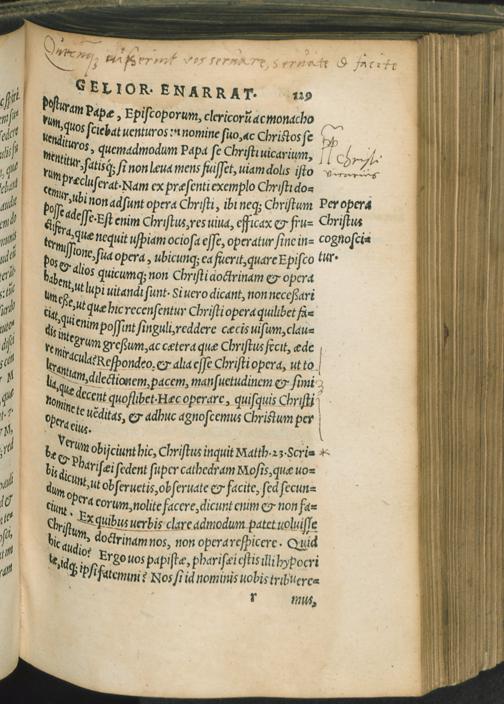 Quecunq; iusserint vos servare, servate & facite
GELIOR. ENARRAT. 129
posturam Papæ, Episcoporum, clericorũ ac monacho
rum, quos sciebat venturos in nomine suo, ac Christos se
vendituros, quemadmodum Papa se Christi vicarium,
mentitur, satisq; si non læva mens fuisset, viam dolis isto
rum præcluserat. Nam ex præsenti exemplo Christi do=
cemur, ubi non adsunt opera Christi, ibi neq; Christum
posse adesse. Est enim Christus, res viva, efficax & fru=
ctifera, quæ nequit uspiam ociosa esse, operatur sine in=
termissione, sua opera, ubicunq; ea fuerit, quare Episco
pos & alios quicumq; non Christi doctrinam & opera
habent, ut lupi vitandi sunt. Si vero dicant, non necessari
um esse, ut quæ hic recensentur Christi opera quilibet fa=
ciat, qui enim possint singuli, reddere cæcis visum, clau=
dis integrum gressum, ac cætera quæ Christus fecit, æde
re miracula? Respondeo, & alia esse Christi opera, ut to
lerantiam, dilectionem, pacem, mansuetudinem & simi
lia, quæ decent quoslibet. Hæc operare, quisquis Christi
nomine te vẽditas, & adhuc agnoscemus Christum per
opera eius.
Verum obijciunt hic, Christus inquit Matth. 23. Scri=
bæ & Pharisæi sedent super cathedram Mosis, quæ vo=
bis dicunt, ut observetis, observate & facite, sed secun=
dum opera eorum, nolite facere, dicunt enim & non fa=
ciunt. Ex quibus verbis clare admodum patet voluisse
Christum, doctrinam nos, non opera respicere. Quid
hic audio? Ergo vos papistæ, pharisæi estis illi hypocri
tæ, idq; ipsi fatemini? Nos si id nominis vobis tribuere=
r mus,
PP Christi
vicarius
Per opera
Christus
cognosci=
tur.
*